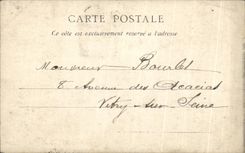 CARTE POSTALE
Ce côté est exclusivement réservé à l'adresse
Monsieur Bourlet
8 Avenue des Acacias
Vitry-sur-Seine